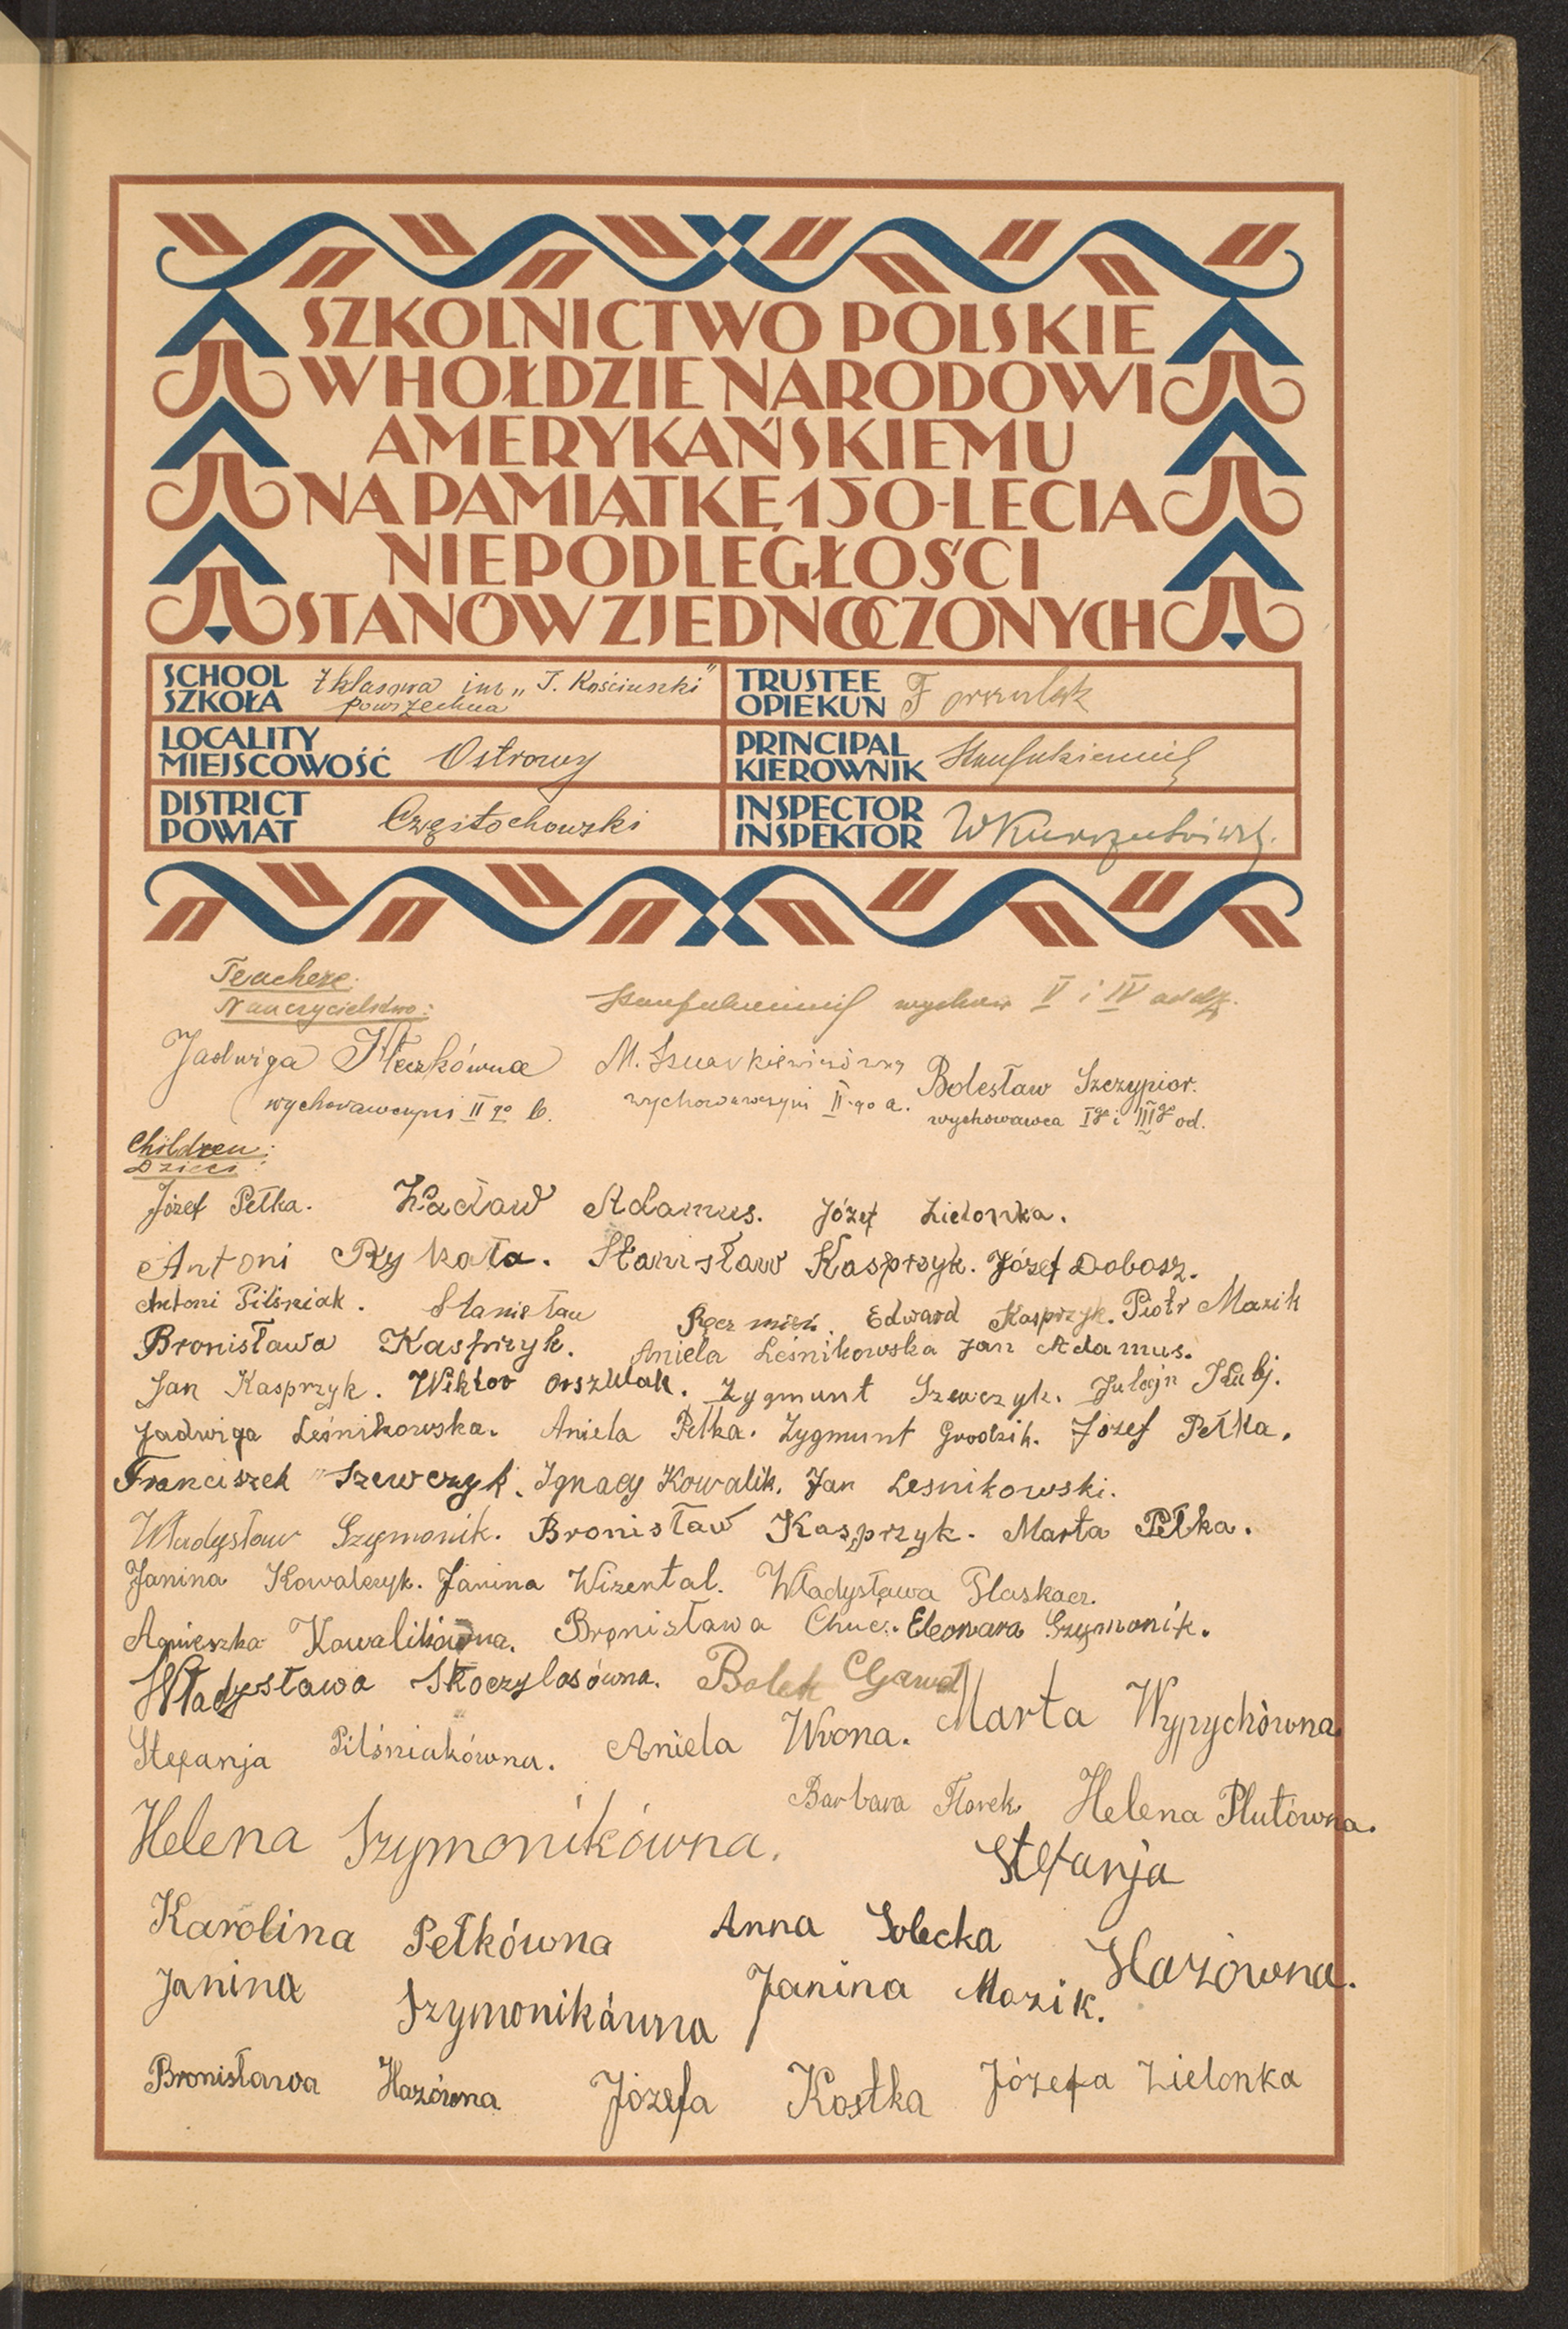 SZKOLNICTWO POLSKIE
W HOŁDZIE NARODOWI
AMERYKAŃSKIEMU
NA PAMIĄTKĘ 150-LECIA
NIEPODLEGŁOŚCI
STANÓW ZJEDNOCZONYCH
SCHOOL
SZKOŁA
7 klasowa im „T. Kościuszki"
powszechna
TRUSTEE
OPIEKUN
F Orszulak
LOCALITY
MIEJSCOWOŚĆ
Ostrowy
PRINCIPAL
KIEROWNIK
DISTRICT
POWIAT
Częstochowski
INSPECTOR
INSPEKTOR
Teachers:
Nauczycielstwo:
wychow V i IV oddz.
Jadwiga
wychowawczyni II go b.
M.
wychowawczyni II-go a.
Bolesław Szczypior.
wychowawca I go i III go od.
Children:
Dzieci:
Józef Pełka. Wacław Adamus. Józef Zielonka.
Antoni Rykała. Stanisław Kasprzyk. Józef Dobosz.
Antoni Pilśniak. Stanisław Edward Kasprzyk. Piotr Mazik
Bronisława Kasprzyk. Aniela Leśnikowska Jan Adamus.
Jan Kasprzyk. Wiktor Orszulak. Zygmunt Szewczyk.
Jadwiga Leśnikowska. Aniela Pełka. Zygmunt Grodzik. Józef Pełka.
Franciszek Szewczyk. Ignacy Kowalik. Jan Lesnikowski.
Władysław Szymonik. Bronisław Kasprzyk. Marta Pełka.
Janina Kowalczyk. Janina Wizental. Władysława Plaskacz.
Agnieszka Kowalikówna. Bronisława Chuć. Eleonara Szymonik.
Władysława Skoczylasówna. Bolek Gaweł
Stefanja Pilśniakówna. Aniela Wrona. Marta Wypychówna
Barbara Florek. Helena Plutówna.
Helena Szymonikówna.
Stefanja
Hazówna.
Karolina Pełkówna Anna Solecka
Janina Szymonikówna Janina Mazik.
Bronisława Hazówna Józefa Kostka Józefa Zielonka